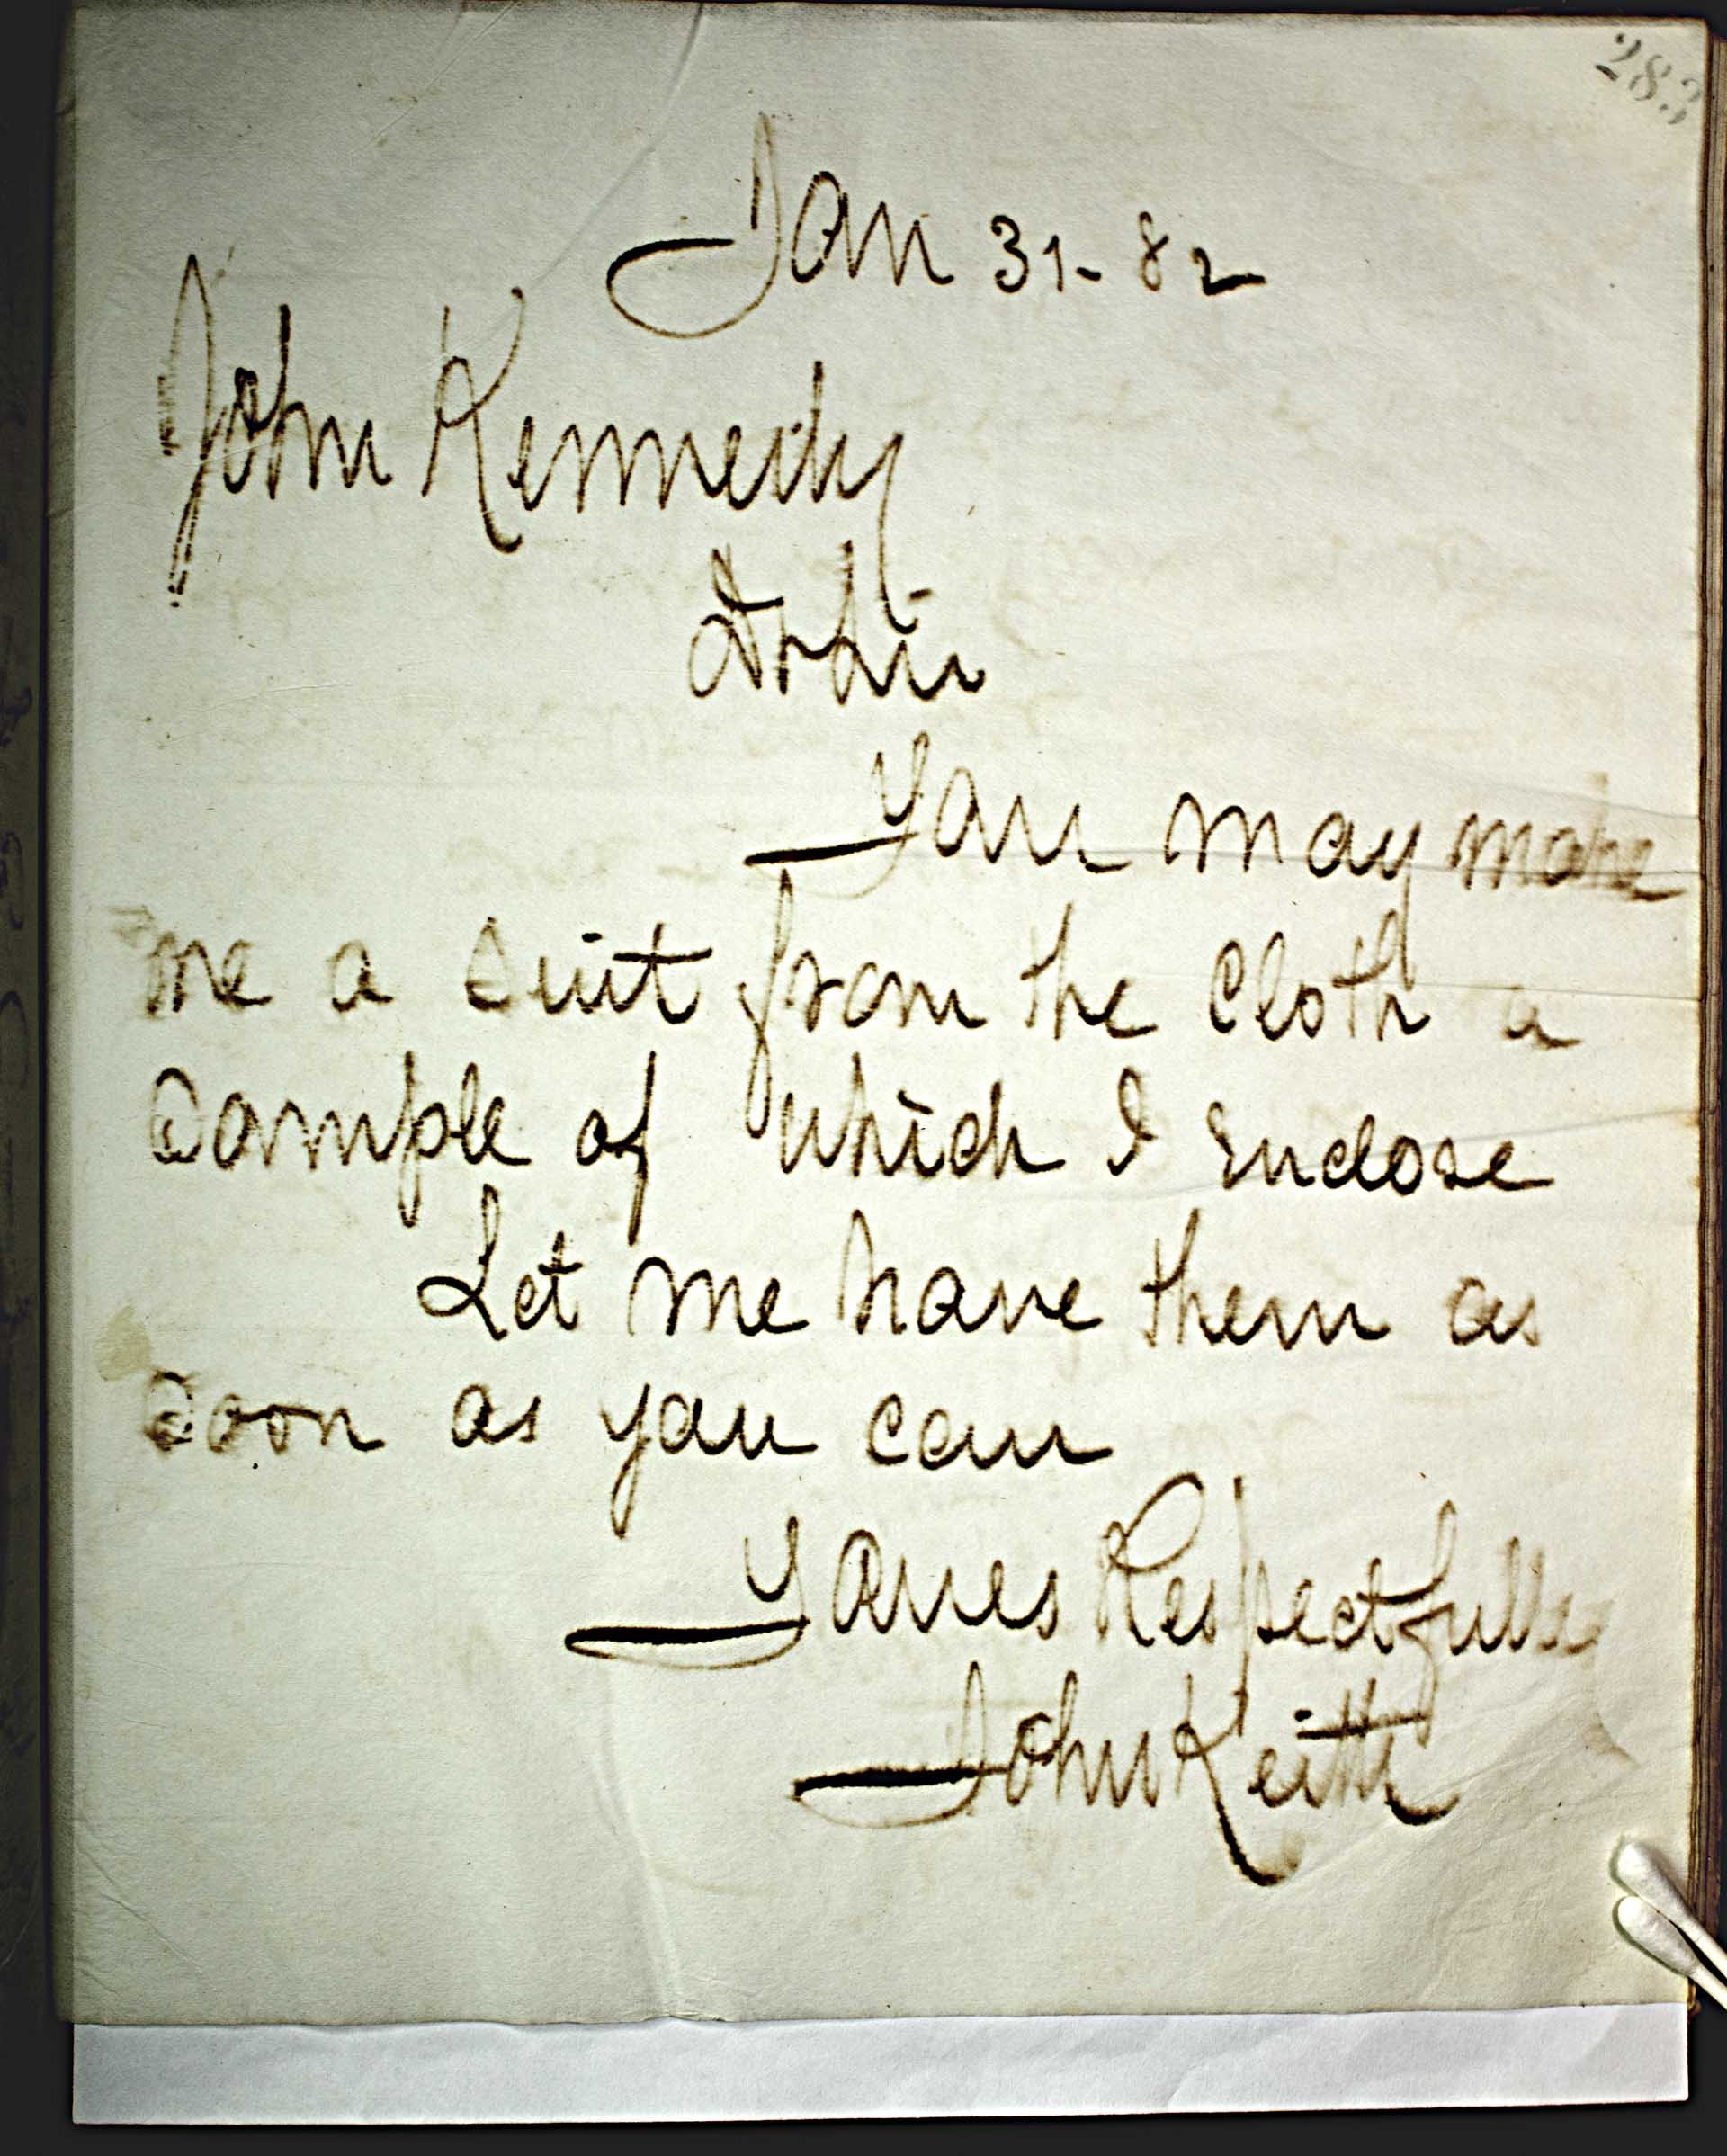 283
Jan 31-82
John Kennedy
You may make
me a suit from the Cloth a
Sample of which I Enclose
Let me have them as
Soon as you can
Yours Respectfully
John Keith